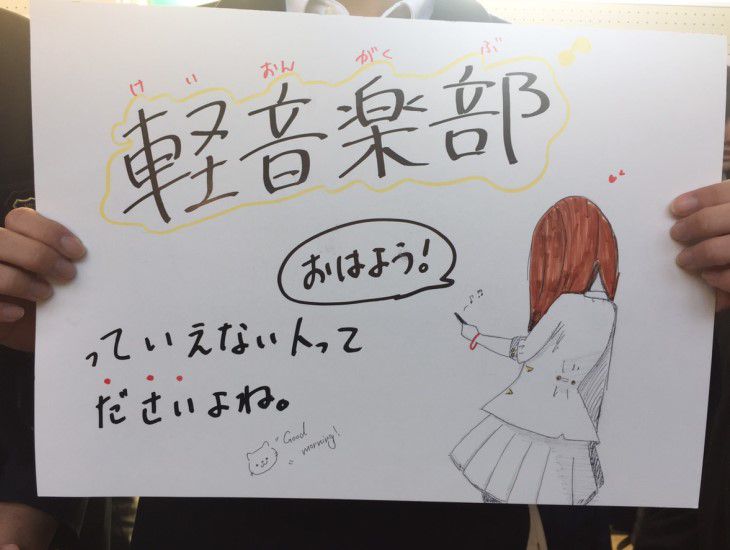 けいおんがくぶ
軽音楽部
おはよう!
っていえない人って
ださいよね。
Good
morning!